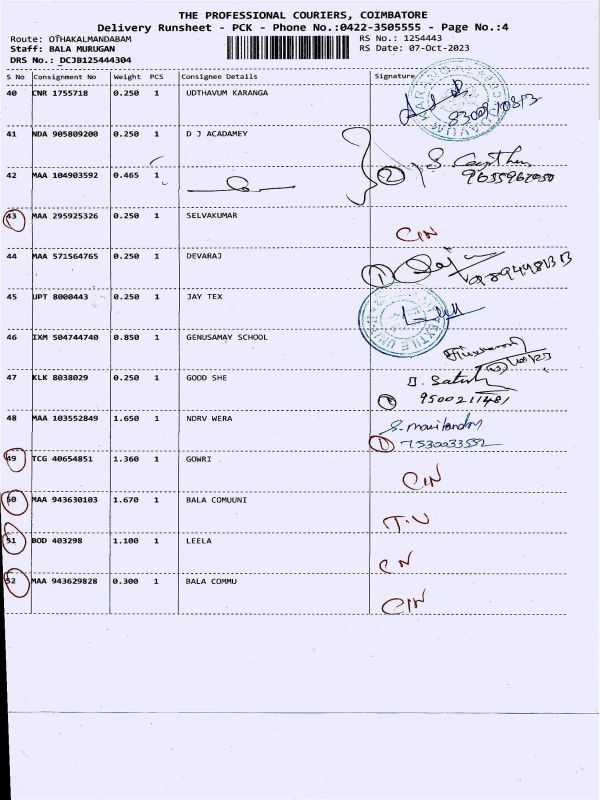 THE PROFESSIONAL COURIERS, COIMBATORE
Delivery Runsheet - PCK - Phone No.:0422-3505555 - Page No.:4
Route: OTHAKALMANDABAM RS No.: 1254443
Staff: BALA MURUGAN RS Date: 07-Oct-2023
DRS No.: DCJB125444304
S No Consignment No Weight PCS Consignee Details Signature
40 CNR 1755718 0.250 1 UDTHAVUM KARANGA
41 NDA 905809200 0.250 1 D J ACADAMEY
42 MAA 104903592 0.465 1 2
43 MAA 295925326 0.250 1 SELVAKUMAR CIN
44 MAA 571564765 0.250 1 DEVARAJ 1
45 UPT 8000443 0.250 1 JAY TEX
46 IXM 504744740 0.850 1 GENUSAMAY SCHOOL
47 KLK 8038029 0.250 1 GOOD SHE
9500211481
48 MAA 103552849 1.650 1 NDRV WERA
1 7530033552
49 TCG 40654851 1.360 1 GOWRI CIN
50 MAA 943630103 1.670 1 BALA COMUUNI T.U
51 BOD 403298 1.100 1 LEELA CN
52 MAA 943629828 0.300 1 BALA COMMU CIN